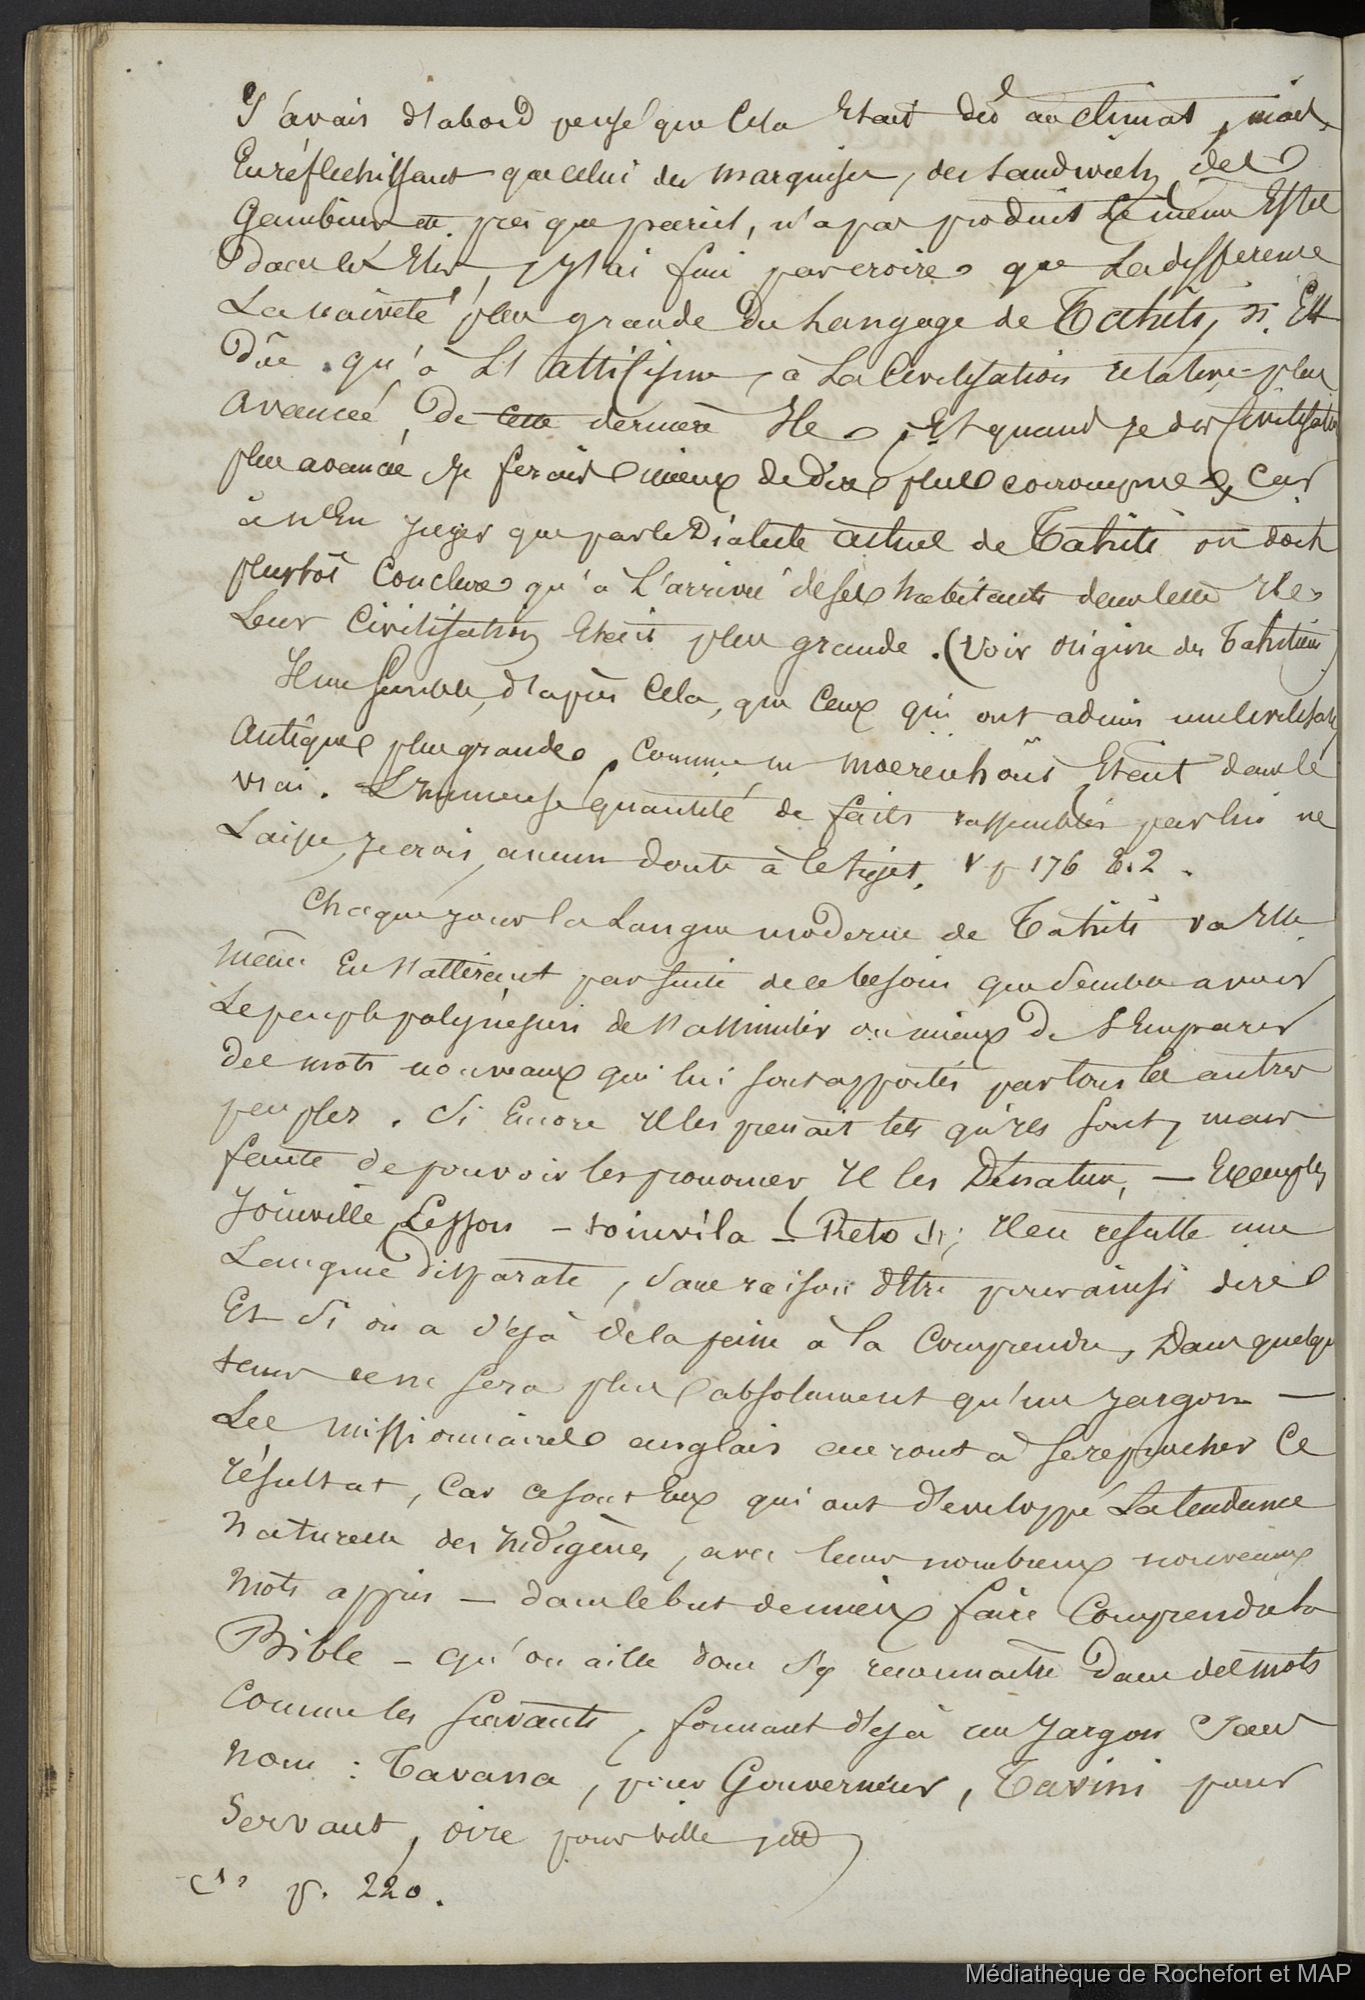 J'avais d'abord pensé que Cela Etait dû au climat, mais,
En réfléchissant que celui des marquises, des Sandwich, des
Gambier etc. presque pareil, n'a pas produit le même Effet
dans les Iles, J'ai fini par croire que La difference
La naiveté plus grande du Langage de Tahiti, n'Est
Dûe qu'à L'atticisme, à La Civilisation relative plus
avancée, De cette dernière Ile, Et quand je dis Civilisation
plus avancée Je ferais mieux de dire plus corrompue, Car
à n'En juger que par le Dialecte actuel de Tahiti on doit
plustôt Conclure qu'à L'arrivée de ses habitants dans cette Ile
Leur Civilisation Etait plus grande. (Voir Origine des Tahitiens)
Il me Semble, d'après Cela, que Ceux qui ont admis une Civilisation
Antique plus grande, Comme Moerenhout, Etaient dans le
vrai. L'immense quantité de faits rassemblés par lui ne
Laisse, Je crois, aucun doute à ce Sujet. V p 176 t.2.
Chaque jour la Langue moderne de Tahiti va Elle
même En s'altérant par suite de ce besoin que Semble avoir
Le peuple polynésien de s'assimiler ou mieux de S'Emparer
des mots nouveaux qui lui sont apportés par tous les autres
peuples. Si Encore Il les prenait tels qu'ils sont, mais
faute de pouvoir les prononcer, Il les Dénature, — Exemples
Joinville, Lesson — toinvila — Reto; Il en resulte une
Langue disparate, Sans raison d'Etre pour ainsi dire
Et Si on a déjà de la peine à la Comprendre, Dans quelque
tems ce ne sera plus absolument qu'un jargon —
Les missionnaires anglais auront à se reprocher Ce
résultat, Car ce sont Eux qui ont développé La tendance
Naturelle des Indigènes, avec leurs nombreux nouveaux
Mots appris — dans le but de mieux faire Comprendre la
Bible — qu'on aille donc s'y reconnaitre Dans des mots
Comme les Suivants, formant déjà un Jargon Sans
Nom : Tavana, pour Gouverneur, Tavini pour
Servant, oire pour ville, etc
p. 220.
Médiathèque de Rochefort et MAP